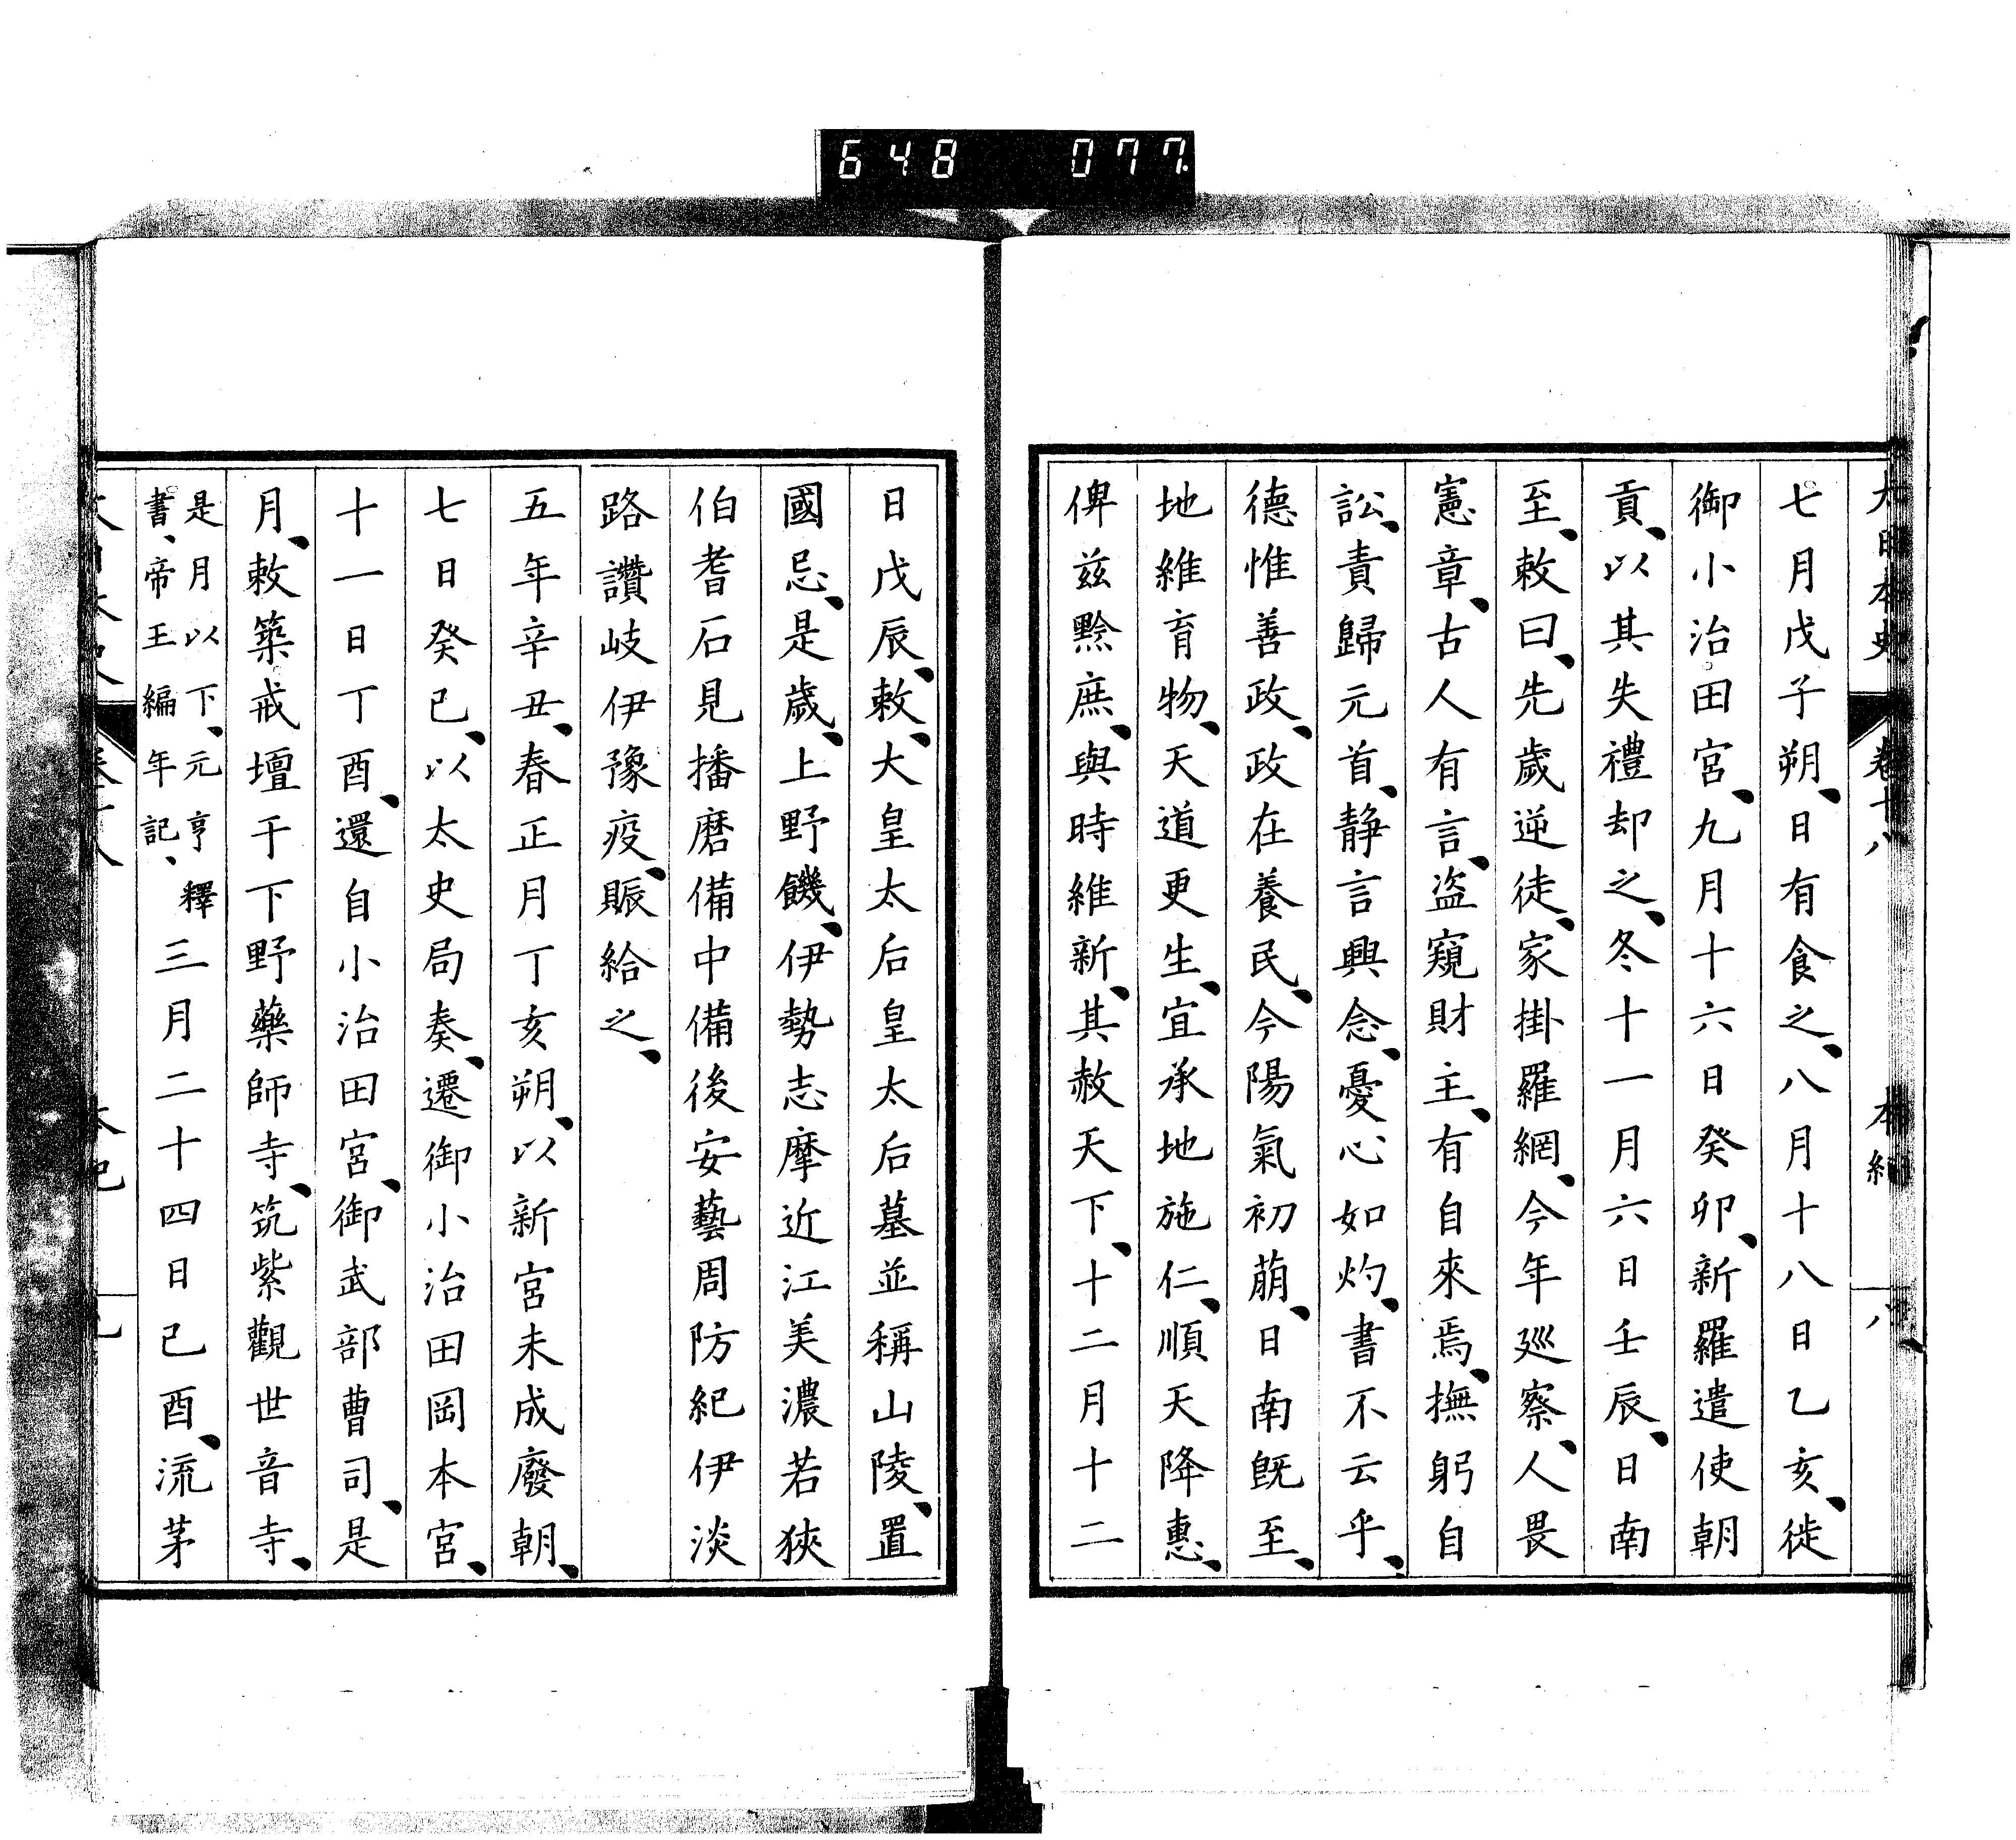 648 077.
大日本史 卷十八 本紀 八
七月戊子朔、日有食之、八月十八日乙亥、徙
御小治田宮、九月十六日癸卯、新羅遣使朝
貢、以其失禮却之、冬十一月六日壬辰、日南
至、敕曰、先歲逆徒、家掛羅網、今年廵察、人畏
憲章、古人有言、盜窺財主、有自來焉、撫躬自
訟、責歸元首、靜言興念、憂心如灼、書不云乎、
德惟善政、政在養民、今陽氣初萠、日南旣至、
地維育物、天道更生、宜承地施仁、順天降惠、
俾兹黔庶、與時維新、其赦天下、十二月十二
日戊辰、敕、大皇太后皇太后墓並稱山陵、置
國忌、是歲、上野饑、伊勢志摩近江美濃若狹
伯耆石見播磨備中備後安藝周防紀伊淡
路讚岐伊豫疫、賑給之、
五年辛丑、春正月丁亥朔、以新宮未成廢朝、
七日癸巳、以太史局奏、遷御小治田岡本宮、
十一日丁酉、還自小治田宮、御武部曹司、是
月、敕築戒壇于下野藥師寺、筑紫觀世音寺、
是月以下、元亨釋
書、帝王編年記、
三月二十四日己酉、流茅